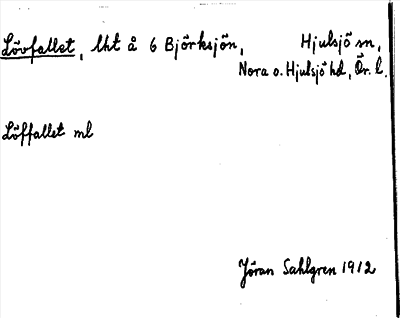 Lövfallet, lht å 6 Björksjön, Hjulsjö sn,
Nora o. Hjulsjö hd, Ör. l.
Löffallet ml
Jöran Sahlgren 1912